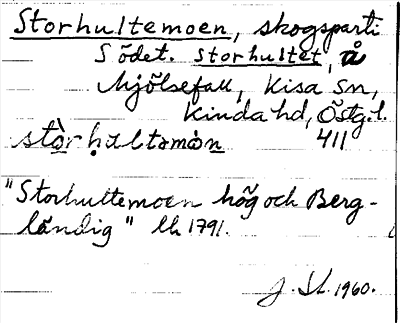 Storhultemoen, skogsparti
S ödet. Storhultet, å
Mjölsefall, Kisa sn,
Kinda hd, Östg.l.
411
stòrhultəmòn
"Storhultemoen hög och Berg-
ländig" lh 1791.
J. 1960.